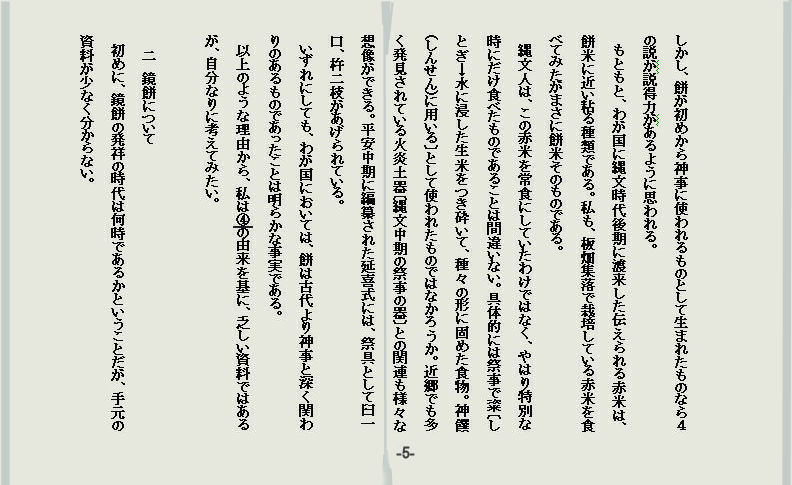 しかし、餅が初めから神事に使われるものとして生まれたものなら４
の説が説得力があるように思われる。
もともと、わが国に縄文時代後期に渡来した伝えられる赤米は、
餅米に近い粘る種類である。私も、板畑集落で栽培している赤米を食
べてみたがまさに餅米そのものである。
縄文人は、この赤米を常食にしていたわけではなく、やはり特別な
時にだけ食べたものであることは間違いない。具体的には祭事で粢〔し
とぎ→水に浸した生米をつき砕いて、種々の形に固めた食物。神饌
（しんせん）に用いる〕として使われたものではなかろうか。近郷でも多
く発見されている火炎土器〔縄文中期の祭事の器〕との関連も様々な
想像ができる。平安中期に編纂された延喜式には、祭具として臼一
口、杵二枝があげられている。
いずれにしても、わが国においては、餅は古代より神事と深く関わ
りのあるものであったことは明らかな事実である。
以上のような理由から、私は④の由来を基に、乏しい資料ではある
が、自分なりに考えてみたい。
二　鏡餅について
初めに、鏡餅の発祥の時代は何時であるかということだが、手元の
資料が少なく分からない。
-5-